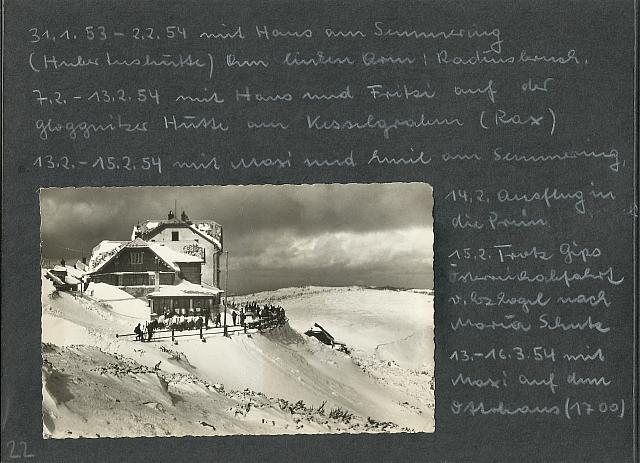 31.1.53 – 2.2.54 mit Hans am Semmering
(Hubertushütte) Am linken Arm! Radiusbruch.
7.2. – 13.2.54 mit Hans und Fritzi auf der
Gloggnitzer Hütte am Kesselgraben (Rax)
13.2. – 15.2.54 mit Maxi und Emil am Semmering,
14.2. Ausflug in
die Prein
15.2. Trotz Gips
nach
Maria Schutz
13.–16.3.54 mit
Maxi auf dem
Ottohaus (1700)
22